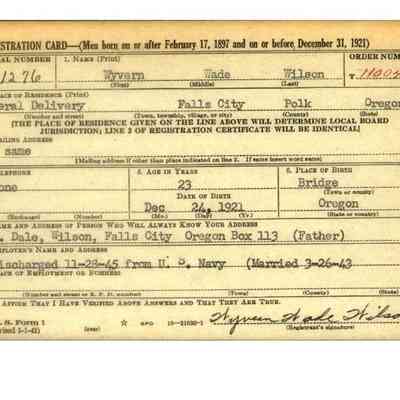 ISTRATION CARD—(Men born on or after February 17, 1897 and on or before December 31, 1921)
IAL NUMBER 1. NAME (Print) ORDER NUM
1276 Wyvern Wade Wilson 11005
(First) (Middle) (Last)
ACE OF RESIDENCE (Print)
eral Delivery Falls City Polk Oregon
(Number and street) (Town, township, village, or city) (County) (State)
[THE PLACE OF RESIDENCE GIVEN ON THE LINE ABOVE WILL DETERMINE LOCAL BOARD
JURISDICTION; LINE 2 OF REGISTRATION CERTIFICATE WILL BE IDENTICAL]
AILING ADDRESS
same
[Mailing address if other than place indicated on line 2. If same insert word same]
ELEPHONE 5. AGE IN YEARS 6. PLACE OF BIRTH
one 23 Bridge
DATE OF BIRTH (Town or county)
Dec 24, 1921 Oregon
(Exchange) (Number) (Mo.) (Day) (Yr.) (State or country)
AME AND ADDRESS OF PERSON WHO WILL ALWAYS KNOW YOUR ADDRESS
. Dale, Wilson, Falls City Oregon Box 113 (Father)
MPLOYER'S NAME AND ADDRESS
ischarged 11-28-45 from U. S. Navy (Married 3-26-43
ACE OF EMPLOYMENT OR BUSINESS
(Number and street or R. F. D. number) (Town) (County) (State)
AFFIRM THAT I HAVE VERIFIED ABOVE ANSWERS AND THAT THEY ARE TRUE.
. S. Form 1 (over) GPO 16—21630-1 Wyvern Wade Wilso
(Registrant's signature)